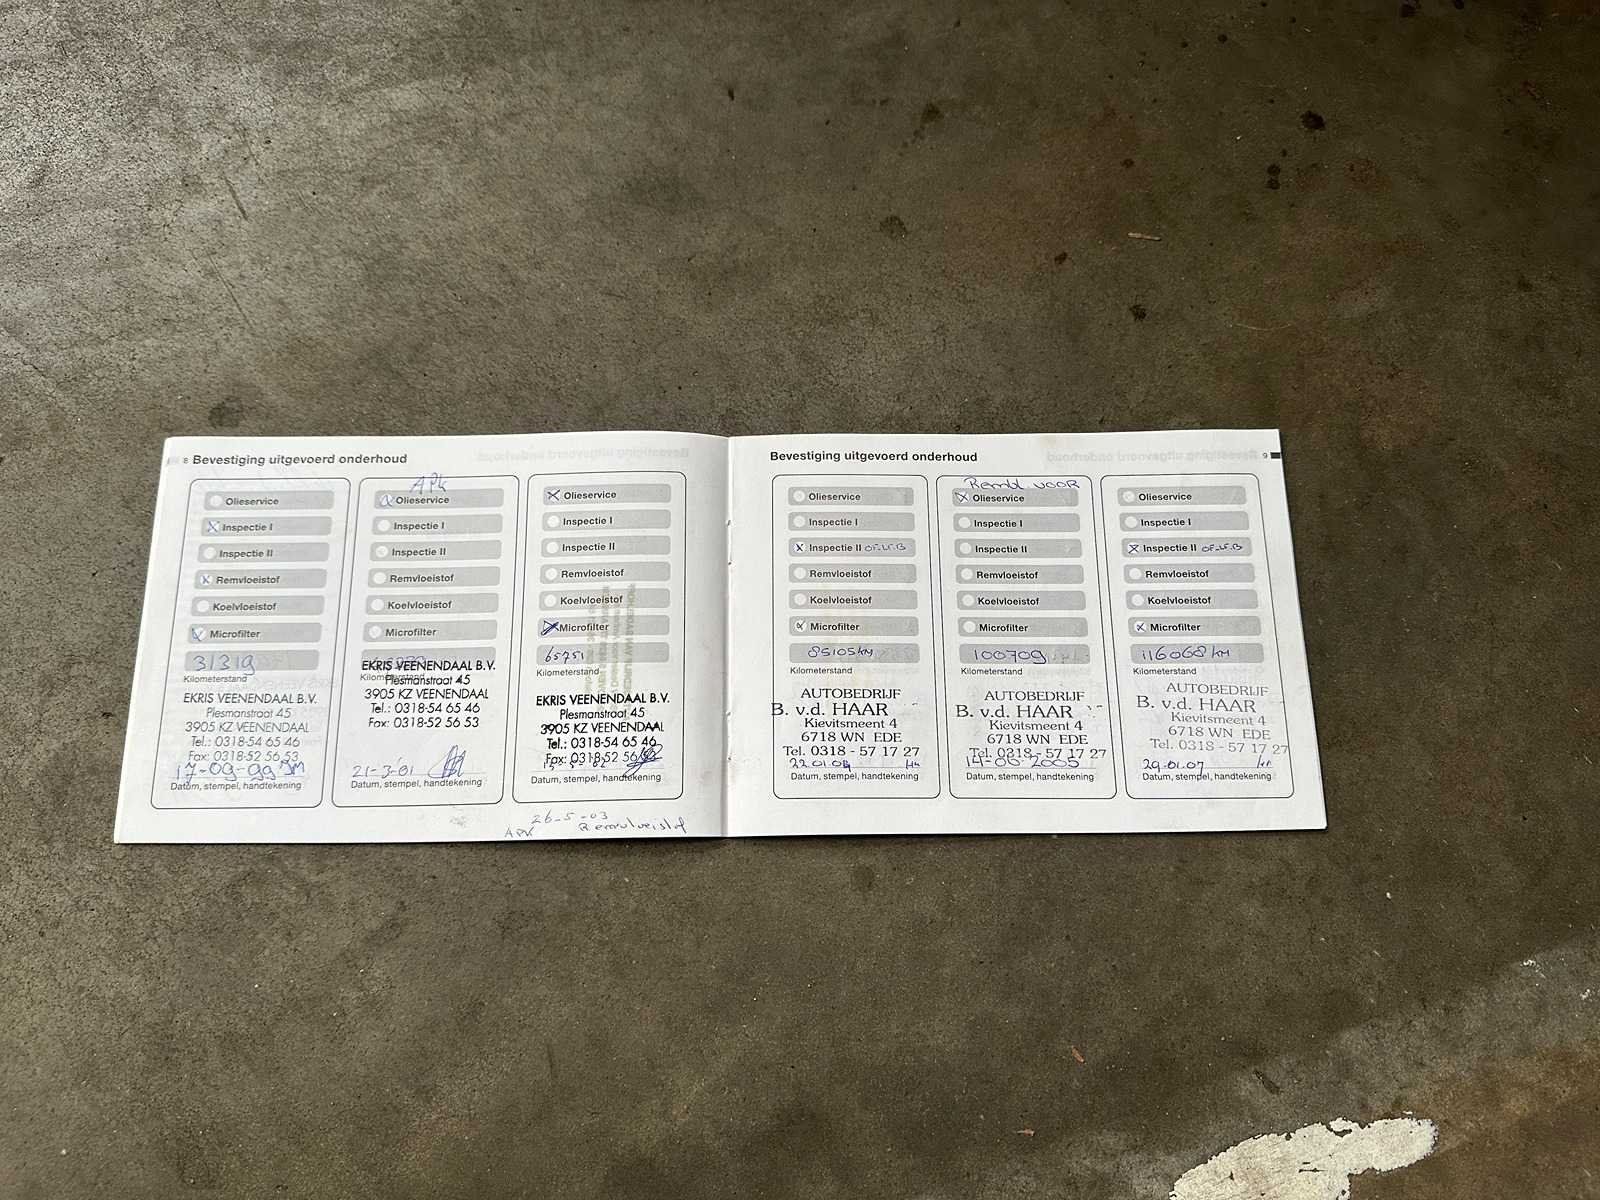 8 Bevestiging uitgevoerd onderhoud
Olieservice
Inspectie I
Inspectie II
Remvloeistof
Koelvloeistof
Microfilter
31319
Kilometerstand
EKRIS VEENENDAAL B.V.
Plesmanstraat 45
3905 KZ VEENENDAAL
Tel.: 0318-54 65 46
Fax: 0318-52 56 53
17-09-99
Datum, stempel, handtekening
APK
Olieservice
Inspectie I
Inspectie II
Remvloeistof
Koelvloeistof
Microfilter
Kilometerstand
EKRIS VEENENDAAL B.V.
Plesmanstraat 45
3905 KZ VEENENDAAL
Tel.: 0318-54 65 46
Fax: 0318-52 56 53
21-3-'01
Datum, stempel, handtekening
Olieservice
Inspectie I
Inspectie II
Remvloeistof
Koelvloeistof
Microfilter
65751
Kilometerstand
EKRIS VEENENDAAL B.V.
Plesmanstraat 45
3905 KZ VEENENDAAL
Tel.: 0318-54 65 46
Fax: 0318-52 56 53
Datum, stempel, handtekening
26-5-03
APK Remvloeistof
Bevestiging uitgevoerd onderhoud 9
Olieservice
Inspectie I
Inspectie II OF-LF-B
Remvloeistof
Koelvloeistof
Microfilter
85105 KM
Kilometerstand
AUTOBEDRIJF
B. v.d. HAAR
Kievitsmeent 4
6718 WN EDE
Tel. 0318 - 57 17 27
22.01.04
Datum, stempel, handtekening
Rembl. VOOR
Olieservice
Inspectie I
Inspectie II
Remvloeistof
Koelvloeistof
Microfilter
100709
Kilometerstand
AUTOBEDRIJF
B. v.d. HAAR
Kievitsmeent 4
6718 WN EDE
Tel. 0318 - 57 17 27
14-06-2005
Datum, stempel, handtekening
Olieservice
Inspectie I
Inspectie II OF-LF-B
Remvloeistof
Koelvloeistof
Microfilter
116068 KM
Kilometerstand
AUTOBEDRIJF
B. v.d. HAAR
Kievitsmeent 4
6718 WN EDE
Tel. 0318 - 57 17 27
29.01.07
Datum, stempel, handtekening